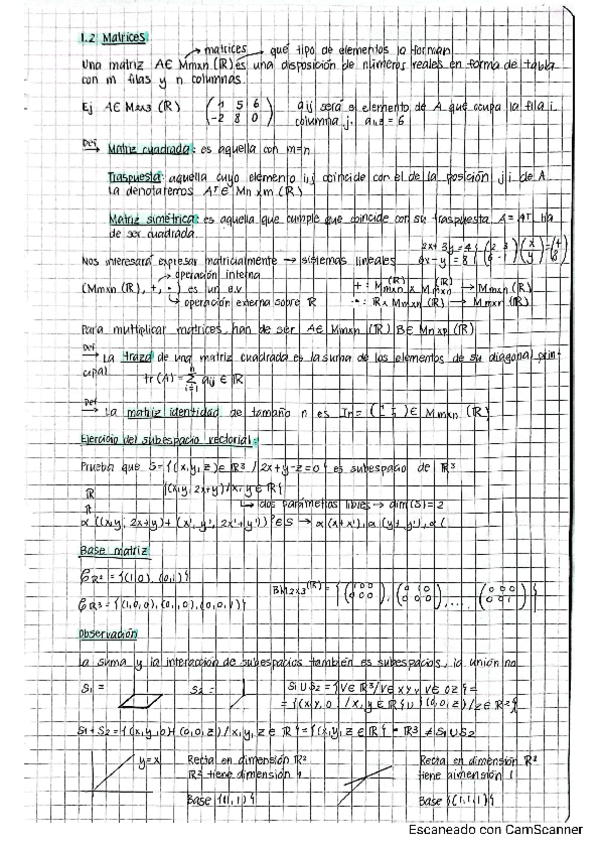 1.2 Matrices
→ matrices → qué tipo de elementos lo forman
Una matriz A∈ Mmxn (ℝ) es una disposición de números reales en forma de tabla
con m filas y n columnas.
Ej A∈ M2x3 (ℝ) (1 5 6 / -2 8 0) aij será el elemento de A que ocupa la fila i
columna j. a1,3 = 6
Def → Matriz cuadrada: es aquella con m=n
Traspuesta: aquella cuyo elemento i,j coincide con el de la posición j i de A
La denotaremos Aᵀ∈ Mnxm (ℝ)
Matriz simétrica: es aquella que cumple que coincide con su traspuesta A = Aᵀ ha
de ser cuadrada.
2x+ 3y = 4
6x-y = 8
Nos interesará expresar matricialmente → sistemas lineales
→ operación interna
(Mmxn (ℝ), +, ·) es un e.v
→ operación externa sobre ℝ
+ : Mmxn (ℝ) x Mmxn (ℝ) → Mmxn (ℝ)
· : ℝx Mmxn (ℝ) → Mmxn (ℝ)
Para multiplicar matrices, han de ser A∈ Mmxn (ℝ) B∈ Mnxp (ℝ)
Def → La traza de una matriz cuadrada es la suma de los elementos de su diagonal prin-
cipal
tr (A) = Σ aij ∈ ℝ
i=1
Def → La matriz identidad de tamaño n es In = ∈ Mmxn (ℝ)
Ejercicio del subespacio vectorial:
Prueba que S={(x,y,z)∈ ℝ³ / 2x+y-z=0} es subespacio de ℝ³
{(x,y, 2x+y)/x,y ∈ ℝ}
→ dos parámetros libres → dim(S)=2
α ((x,y, 2x+y)+ (x', y', 2x'+y')) ∈S → α(x+x'), α (y+y'), α(
Base matriz
ℝ² = {(1,0), (0,1)}
ℝ³ = {(1,0,0), (0,1,0), (0,0,1)}
BM2x3(ℝ) = {(1 0 0 / 0 0 0), (0 1 0 / 0 0 0), ...., (0 0 0 / 0 0 1)}
Observación
La suma y la interacción de subespacios también es subespacios, la unión no
S1 =
S2 =
S1 U S2 = {V∈ ℝ³/V∈ XY v V∈ OZ} =
= {(x,y,0) / x,y ∈ ℝ} U {(0,0,z)/z∈ ℝ}
S1+S2={(x,y,0)+ (0,0,z) / x,y,z ∈ ℝ}={x,y,z ∈ ℝ} = ℝ³ ≠ S1 U S2
y=x
Recta en dimensión ℝ²
ℝ² tiene dimensión 1
Base {(1,1)}
Recta en dimensión ℝ²
tiene dimensión 1
Base {(1,1,1)}
Escaneado con CamScanner